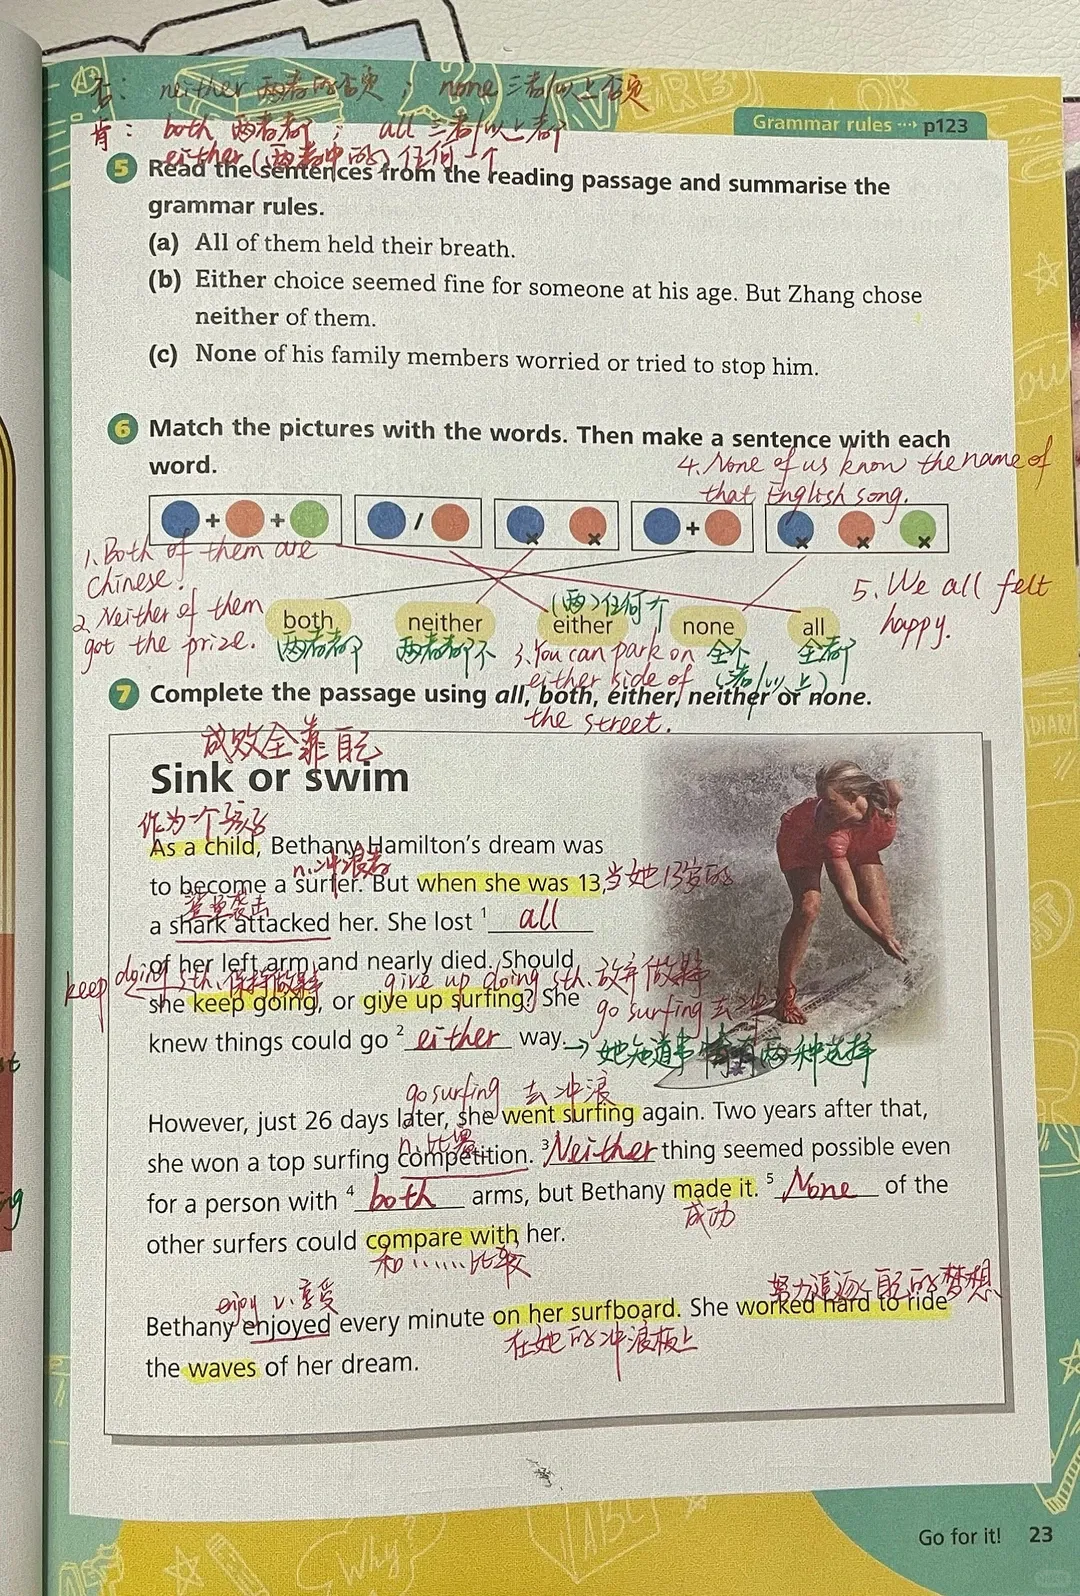 否： neither 两者的否定； none 三者/以上否定
肯： both 两者都； all 三者/以上都
either (两者中的) 任何一个
Grammar rules ··· p123
5 Read the sentences from the reading passage and summarise the
grammar rules.
(a) All of them held their breath.
(b) Either choice seemed fine for someone at his age. But Zhang chose
neither of them.
(c) None of his family members worried or tried to stop him.
6 Match the pictures with the words. Then make a sentence with each
word.
4. None of us know the name of
that English song.
1. Both of them are
Chinese.
2. Neither of them
got the prize.
both neither either none all
两者都 两者都不 (两)任何个 全不 全都
(三者/以上)
3. You can park on
either side of
the street.
5. We all felt
happy.
7 Complete the passage using all, both, either, neither or none.
成败全靠自己
Sink or swim
作为一个孩子
As a child, Bethany Hamilton's dream was
n.冲浪者
to become a surfer. But when she was 13, 当她13岁的
鲨鱼袭击
a shark attacked her. She lost 1 all
of her left arm and nearly died. Should
keep doing sth. 保持做某事 give up doing sth. 放弃做某事
she keep going, or give up surfing? She
go surfing 去冲浪
knew things could go 2 either way. → 她知道事情有两种选择
go surfing 去冲浪
However, just 26 days later, she went surfing again. Two years after that,
n.比赛
she won a top surfing competition. 3 Neither thing seemed possible even
for a person with 4 both arms, but Bethany made it. 5 None of the
成功
other surfers could compare with her.
和……比较
努力追逐自己的梦想
enjoy v.享受
Bethany enjoyed every minute on her surfboard. She worked hard to ride
在她的冲浪板上
the waves of her dream.
Go for it! 23